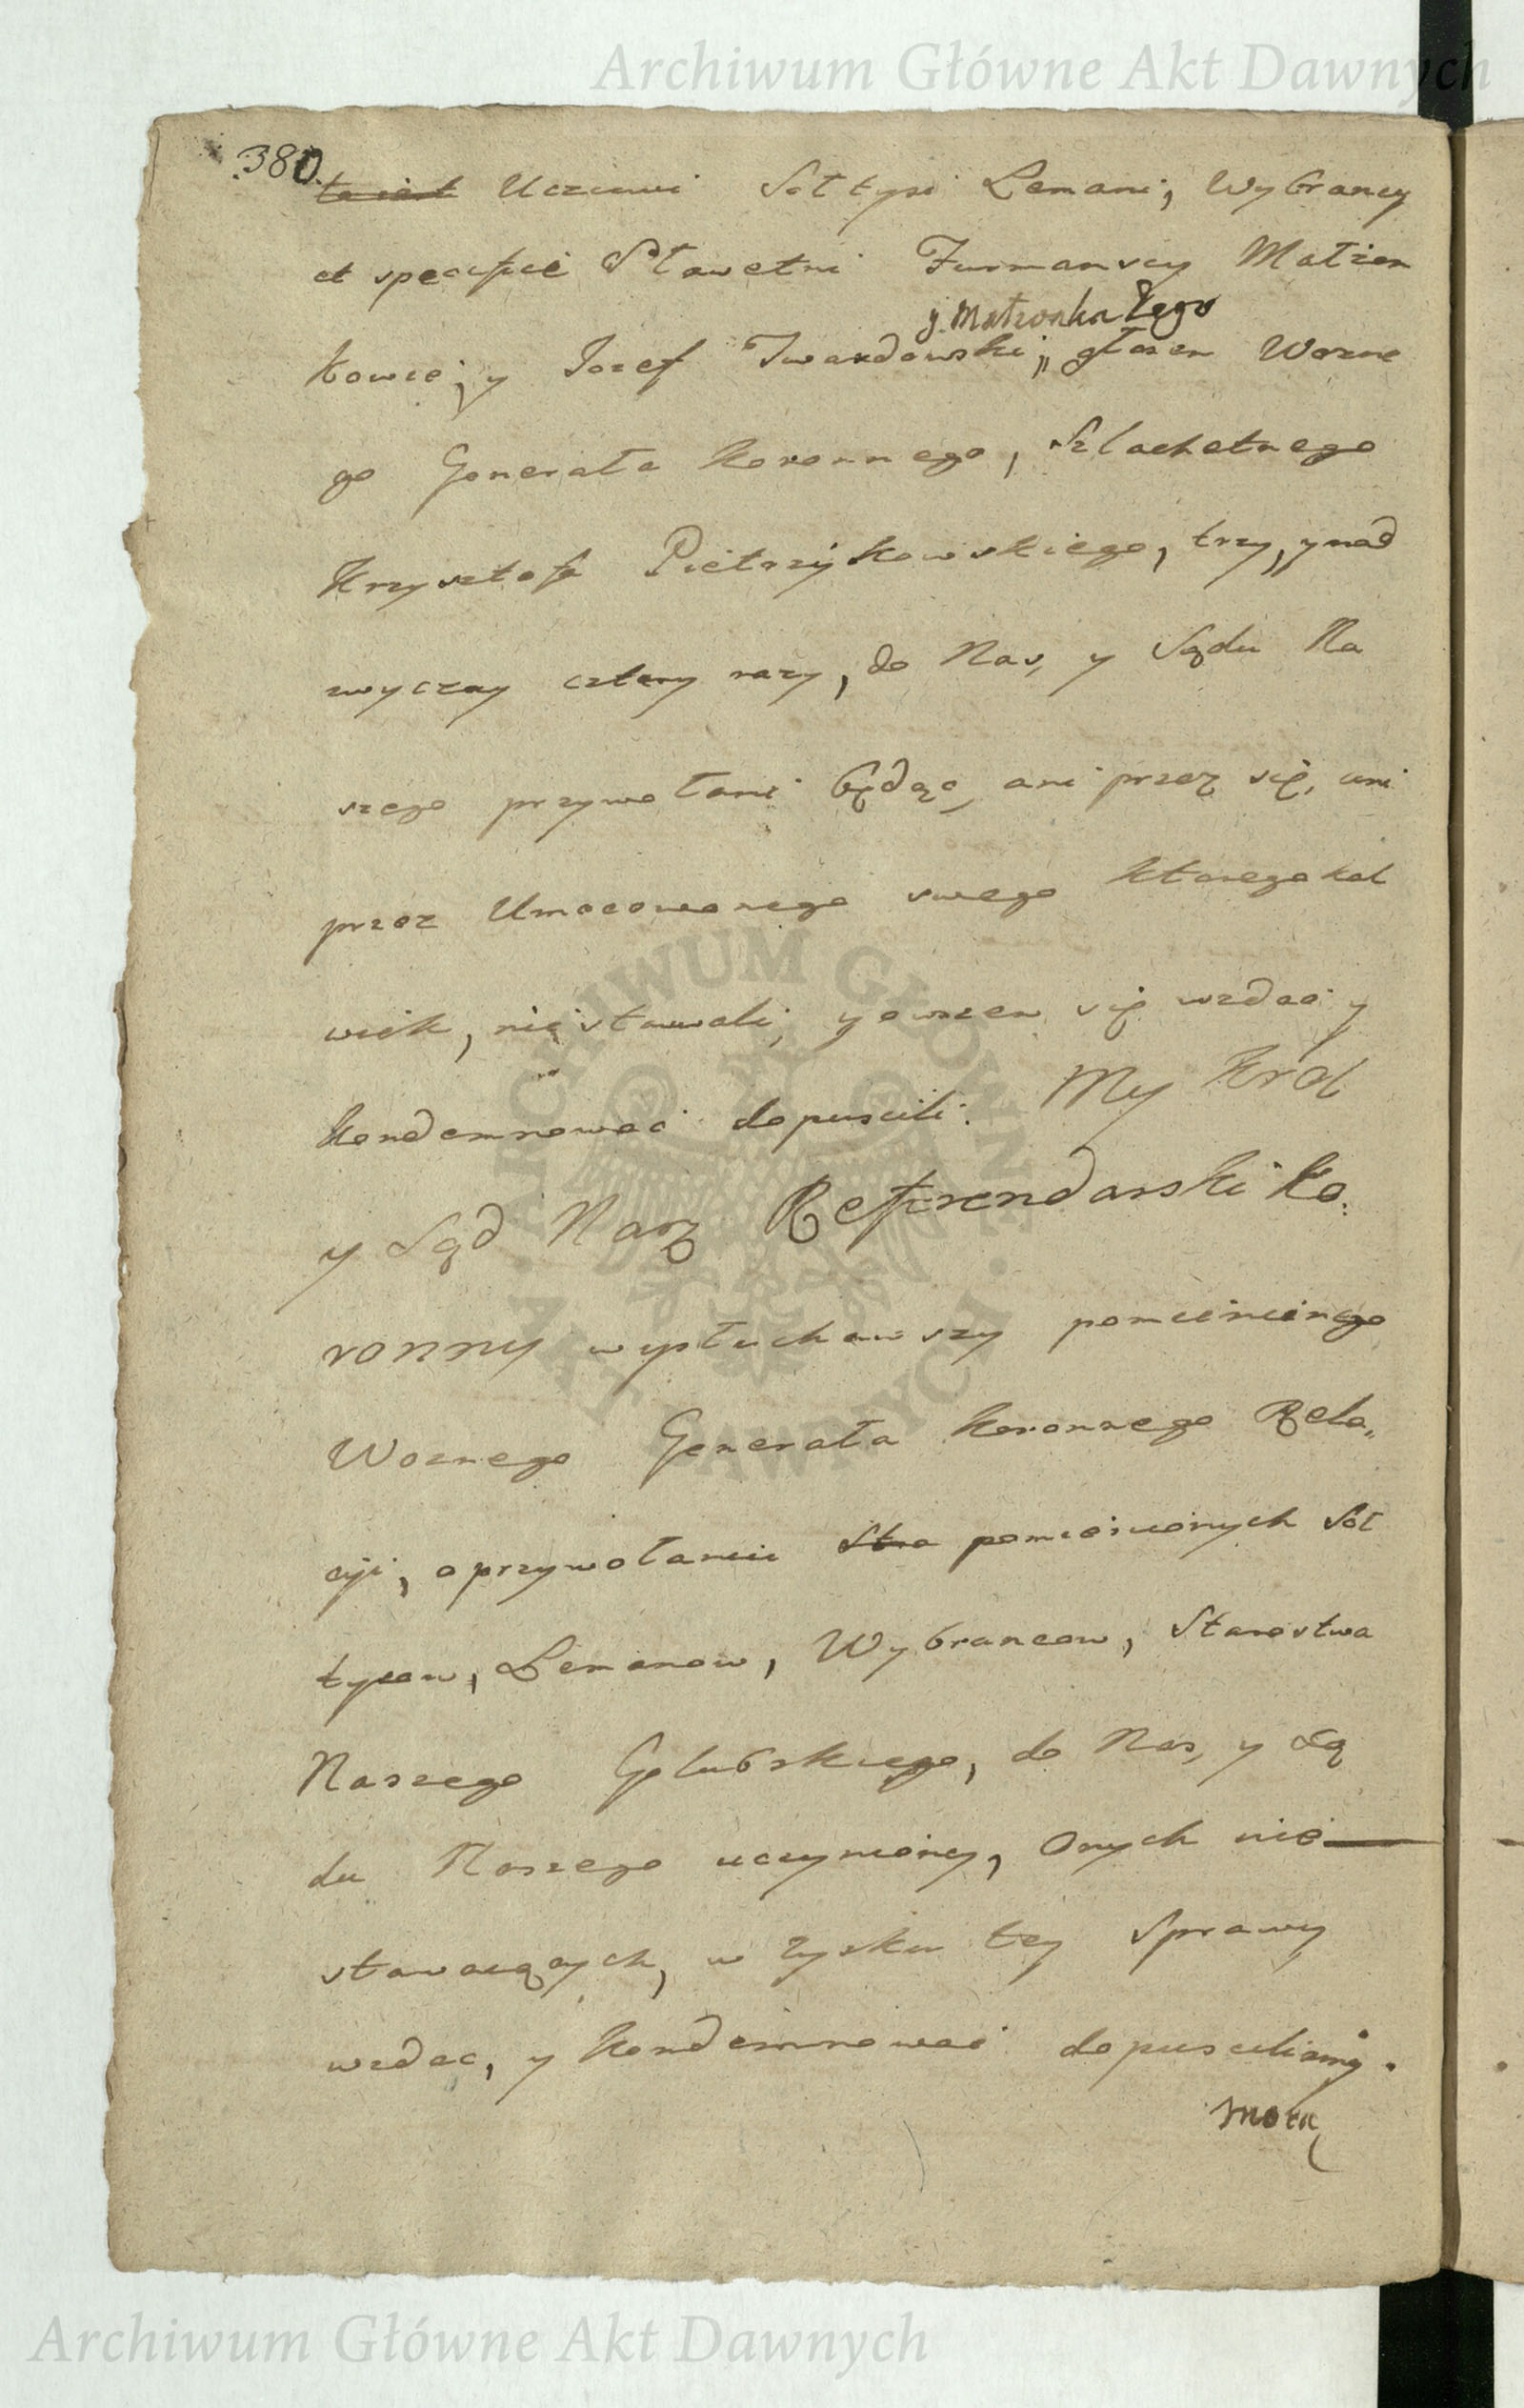 Archiwum Główne Akt Dawnych
380.
to iest Uczciwi Sołtysi Lemani, Wybrancy
et specifice Sławetni Furmanscy Małżon
y Małżonka Jego
kowie, y Jozef Twardowski,, głosem Wozne
go Generała Koronnego, Szlachetnego
Krzysztofa Pietrzykowskiego, trzy, y nad
zwyczay cztery razy, do Nas, y Sądu Na
szego przywołani będąc, ani przez się, ani
przez Umocowanego swego ktoregokol
wiek, nie stawali, y owszem się wzdać y
kondemnować dopuscili. My Krol
y Sąd Nasz Referendarski Ko:
ronny wysłuchawszy pomienionego
Woznego Generała Koronnego Rela,,
cyi, o przywołaniu Stro pomienionych Soł
tysow, Lemanow, Wybrancow, Starostwa
Naszego Golubskiego, do Nas, y Są
du Naszego uczynioney, Onych nie
stawaiących, w zysku tey Sprawy
wzdac, y kondemnować dopuscilismy.
mocą
ARCHIWUM GŁÓWNE · AKT DAWNYCH ·
Archiwum Główne Akt Dawnych